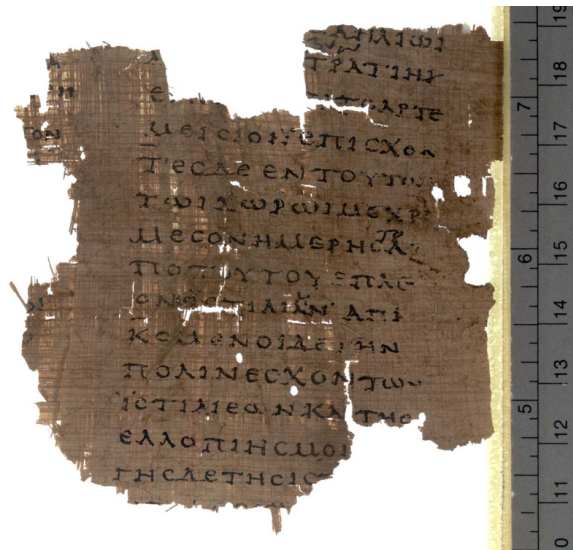 ΑΗΛΙΩΙ
ΤΡΑΤΙΗΗ
ΑΡΤΕ
ΟΝ ΜΕΙCΙΟΝ ΕΠΙCΧΟΝ
ΤΕCΔΕΕΝΤΟΥΤΩ
ΤΩΙΧΩΡΩΙΜΕΧΡΙ
ΜΕCΟΝΗΜΕΡΗCΤΟΑ
ΠΟΤΟΥΤΟΥΕΠΛΕ
ΟΝ CΤΙΑΙΑΝ ΑΠΙ
ΚΟΜΕΝΟΙΔΕΤΗΝ
ΠΟΛΙΝΕCΧΟΝΤΩΝ
ΪCΤΙΑΙΕΩΝΚΑΙΤΗC
ΕΛΛΟΠΙΗCΜΟΙ
ΓΗCΔΕΤΗCΙC